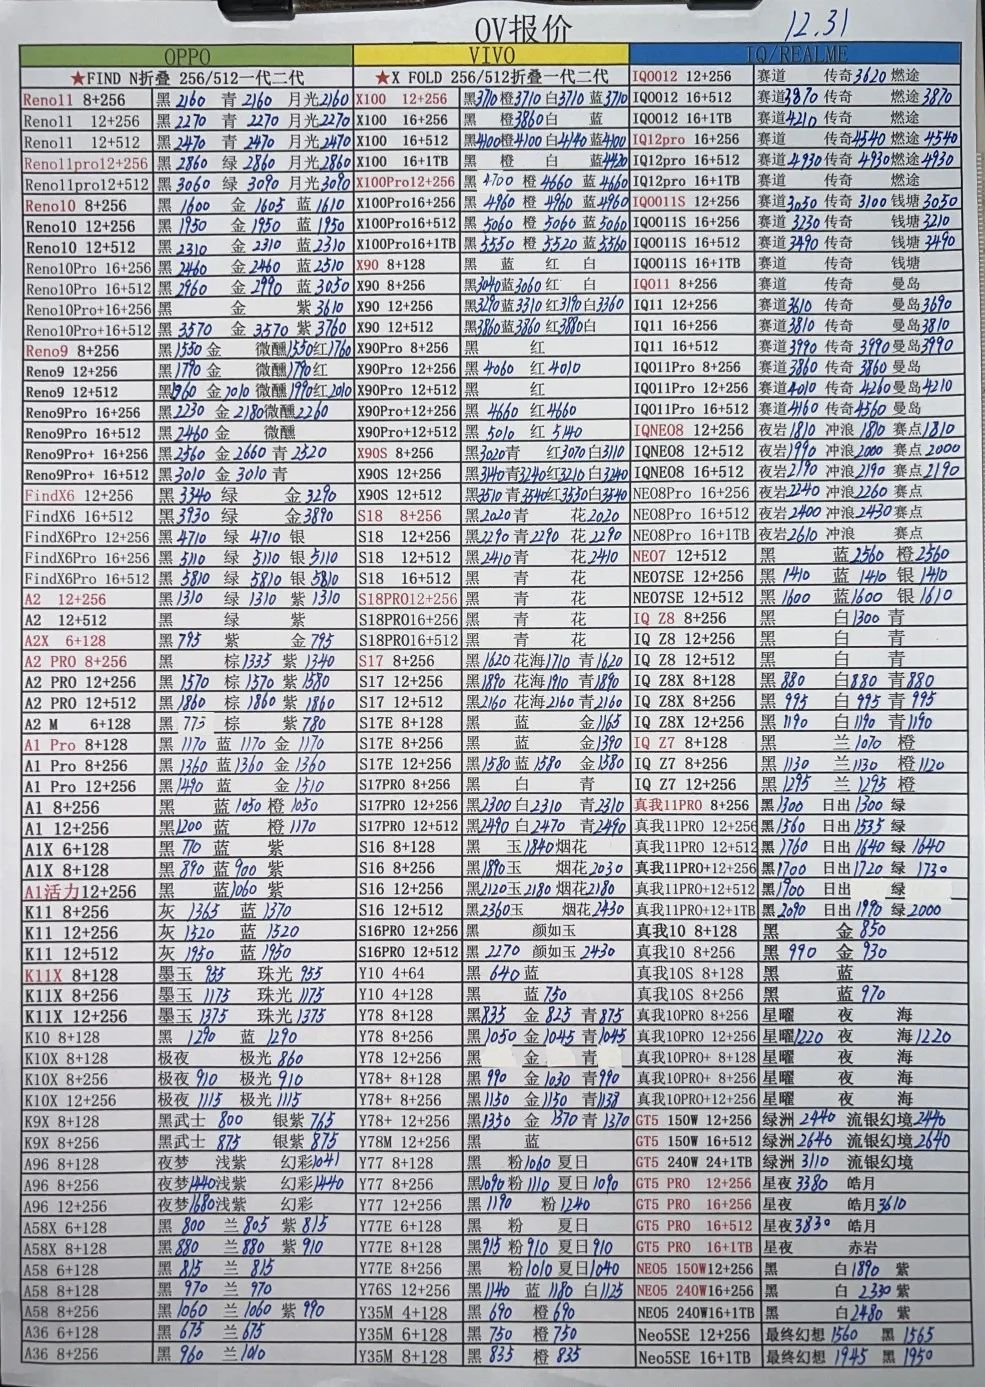 OV报价 12.31
OPPO VIVO IQ/REALME
★FIND N折叠 256/512一代二代 ★X FOLD 256/512折叠一代二代 IQOO12 12+256 赛道 传奇3620 燃途
Reno11 8+256 黑2160 青2160 月光2160 X100 12+256 黑3710橙3710白3710蓝3710 IQOO12 16+512 赛道3870传奇 燃途3870
Reno11 12+256 黑2270 青2270 月光2270 X100 16+256 黑 橙3860白 蓝 IQOO12 16+1TB 赛道4210传奇 燃途
Reno11 12+512 黑2470 青2470 月光2470 X100 16+512 黑4100橙4100白4140蓝4100 IQ12pro 16+256 赛道 传奇4540 燃途4540
Reno11pro12+256 黑2860 绿2860 月光2860 X100 16+1TB 黑 橙 白 蓝4420 IQ12pro 16+512 赛道4930传奇4930燃途4930
Reno11pro12+512 黑3060 绿3090 月光3090 X100Pro12+256 黑4700 橙4660 蓝4660 IQ12pro 16+1TB 赛道 传奇 燃途
Reno10 8+256 黑1600 金1605 蓝1610 X100Pro16+256 黑4960 橙4960 蓝4960 IQOO11S 12+256 赛道3050 传奇3100 钱塘3050
Reno10 12+256 黑1950 金1950 蓝1950 X100Pro16+512 黑5060 橙5060 蓝5060 IQOO11S 16+256 赛道3230 传奇 钱塘3210
Reno10 12+512 黑2310 金2310 蓝2310 X100Pro16+1TB 黑5550 橙5520 蓝5560 IQOO11S 16+512 赛道3490 传奇 钱塘3490
Reno10Pro 16+256 黑2460 金2460 蓝2510 X90 8+128 黑 蓝 红 白 IQOO11S 16+1TB 赛道 传奇 钱塘
Reno10Pro 16+512 黑2960 金2990 蓝3050 X90 8+256 黑3040蓝3060红 白 IQO11 8+256 赛道 传奇 曼岛
Reno10Pro+16+256 黑 金 紫3610 X90 12+256 黑3290蓝3310红3190白3360 IQ11 12+256 赛道3610 传奇 曼岛3690
Reno10Pro+16+512 黑3570 金3570 紫3760 X90 12+512 黑3860蓝3860红3880白 IQ11 16+256 赛道3810 传奇 曼岛3810
Reno9 8+256 黑1550金 微醺1550红1760 X90Pro 8+256 黑 红 IQ11 16+512 赛道3990 传奇3990曼岛3990
Reno9 12+256 黑1790金 微醺1790红 X90Pro 12+256 黑4060 红4010 IQO11Pro 8+256 赛道3860 传奇3860曼岛
Reno9 12+512 黑1960 金2010微醺1990红2010 X90Pro 12+512 黑 红 IQO11Pro 16+256 赛道4010 传奇4260曼岛4210
Reno9Pro 16+256 黑2230 金2180微醺2260 X90Pro+12+256 黑4660 红4660 IQO11Pro 16+512 赛道4160 传奇4560曼岛
Reno9Pro 16+512 黑2460金 微醺 X90Pro+12+512 黑5010 红5140 IQNEO8 12+256 夜岩1810 冲浪1810 赛点1810
Reno9Pro+ 16+256 黑2560 金2660青2520 X90S 8+256 黑3020青 红3070白3110 IQNEO8 12+512 夜岩1990 冲浪2000 赛点2000
Reno9Pro+ 16+512 黑3010 金3010青 X90S 12+256 黑3140青3240红3210白3240 IQNEO8 16+512 夜岩2190 冲浪2190 赛点2190
FindX6 12+256 黑3340 绿 金3290 X90S 12+512 黑3510青3540红3530白3540 NEO8Pro 16+256 夜岩2240 冲浪2260 赛点
FindX6 16+512 黑3930 绿 金3890 S18 8+256 黑2020青 花2020 NEO8Pro 16+512 夜岩2400 冲浪2430赛点
FindX6Pro 12+256 黑4710 绿4710银 S18 12+256 黑2290青2290 花2290 NEO8Pro 16+1TB 夜岩2610 冲浪 赛点
FindX6Pro 16+256 黑5110 绿5110银5110 S18 12+512 黑2410青 花2410 NEO7 12+512 黑 蓝2560 橙2560
FindX6Pro 16+512 黑5810 绿5810银5810 S18 16+512 黑 青 花 NEO7SE 12+256 黑1410 蓝1410 银1410
A2 12+256 黑1310 绿1310 紫1310 S18PRO12+256 黑 青 花 NEO7SE 12+512 黑1600 蓝1600 银1610
A2 12+512 黑 绿 紫 S18PRO16+256 黑 青 花 IQ Z8 8+256 黑 白1300 青
A2X 6+128 黑795 紫 金795 S18PRO16+512 黑 青 花 IQ Z8 12+256 黑 白 青
A2 PRO 8+256 黑 棕1335 紫1340 S17 8+256 黑1620花海1710 青1620 IQ Z8 12+512 黑 白 青
A2 PRO 12+256 黑1570 棕1570 紫1580 S17 12+256 黑1890花海1910 青1890 IQ Z8X 8+128 黑880 白880 青880
A2 PRO 12+512 黑1860 棕1860 紫1860 S17 12+512 黑2160花海2160青2160 IQ Z8X 8+256 黑995 白995 青995
A2 M 6+128 黑775 棕 紫780 S17E 8+128 黑 蓝 金1165 IQ Z8X 12+256 黑1190 白1190 青1190
A1 Pro 8+128 黑1170 蓝1170 金1170 S17E 8+256 黑 蓝 金1390 IQ Z7 8+128 黑 兰1070 橙
A1 Pro 8+256 黑1360蓝1360 金1360 S17E 12+256 黑1580蓝1580 金1580 IQ Z7 8+256 黑1130 兰1130 橙1120
A1 Pro 12+256 黑1490 蓝 金1510 S17PRO 8+256 黑 白 青 IQ Z7 12+256 黑1295 兰1295 橙
A1 8+256 黑 蓝1050橙1050 S17PRO 12+256 黑2300白2310 青2310 真我11PRO 8+256 黑1300 日出1300 绿
A1 12+256 黑1200 蓝 橙1170 S17PRO 12+512 黑2490白2470 青2490 真我11PRO 12+256 黑1560 日出1535 绿
A1X 6+128 黑710 蓝 紫 S16 8+128 黑 玉1840烟花 真我11PRO 12+512 黑1760 日出1640 绿1640
A1X 8+128 黑890蓝900 紫 S16 8+256 黑1890玉 烟花2030 真我11PRO+12+256 黑1700 日出1720 绿1730
A1活力12+256 黑 蓝1060 紫 S16 12+256 黑2120玉2180烟花2180 真我11PRO+12+512 黑1900 日出 绿
K11 8+256 灰1365 蓝1370 S16 12+512 黑2360玉 烟花2430 真我11PRO+12+1TB 黑2090 日出1990 绿2000
K11 12+256 灰1520 蓝1520 S16PRO 12+256 黑 颜如玉 真我10 8+128 黑 金850
K11 12+512 灰1950 蓝1950 S16PRO 12+512 黑2270 颜如玉2430 真我10 8+256 黑990 金930
K11X 8+128 墨玉955 珠光955 Y10 4+64 黑640蓝 真我10S 8+128 黑 蓝
K11X 8+256 墨玉1175 珠光1175 Y10 4+128 黑 蓝750 真我10S 8+256 黑 蓝970
K11X 12+256 墨玉1375 珠光1375 Y78 8+128 黑835 金825 青875 真我10PRO 8+256 星曜 夜 海
K10 8+128 黑1290 蓝1290 Y78 8+256 黑1050金1045青1045 真我10PRO 12+256 星曜1220 夜 海1220
K10X 8+128 极夜 极光860 Y78 12+256 黑 金 青 真我10PRO+ 8+128 星曜 夜 海
K10X 8+256 极夜910 极光910 Y78+ 8+128 黑990 金1030 青990 真我10PRO+ 8+256 星曜 夜 海
K10X 12+256 极夜1115 极光1115 Y78+ 8+256 黑1150 金1150 青1138 真我10PRO+12+256 星曜 夜 海
K9X 8+128 黑武士800 银紫765 Y78+ 12+256 黑1350 金1370青1370 GT5 150W 12+256 绿洲2440 流银幻境2440
K9X 8+256 黑武士875 银紫875 Y78M 12+256 黑 蓝 GT5 150W 16+512 绿洲2640 流银幻境2640
A96 8+128 夜梦 浅紫 幻彩1041 Y77 8+128 黑 粉1060夏日 GT5 240W 24+1TB 绿洲3110 流银幻境
A96 8+256 夜梦1440浅紫 幻彩1440 Y77 8+256 黑1090粉1110夏日1090 GT5 PRO 12+256 星夜3380 皓月
A96 12+256 夜梦1680浅紫 幻彩 Y77 12+256 黑1190 粉1240 GT5 PRO 16+256 星夜 皓月3610
A58X 6+128 黑800 兰805 紫815 Y77E 6+128 黑 粉 夏日 GT5 PRO 16+512 星夜3830 皓月
A58X 8+128 黑880 兰880 紫910 Y77E 8+128 黑915粉910夏日910 GT5 PRO 16+1TB 星夜 赤岩
A58 6+128 黑815 兰815 Y77E 8+256 黑 粉1010夏日1040 NEO5 150W12+256 黑 白1890 紫
A58 8+128 黑970 兰970 Y76S 12+256 黑1140 蓝1180白1125 NEO5 240W16+256 黑 白2330紫
A58 8+256 黑1060 兰1060 紫990 Y35M 4+128 黑690 橙690 NEO5 240W16+1TB 黑 白2480 紫
A36 6+128 黑675 兰675 Y35M 6+128 黑750 橙750 Neo5SE 12+256 最终幻想1560 黑1565
A36 8+256 黑960 兰1010 Y35M 8+128 黑835 橙835 Neo5SE 16+1TB 最终幻想1945 黑1950